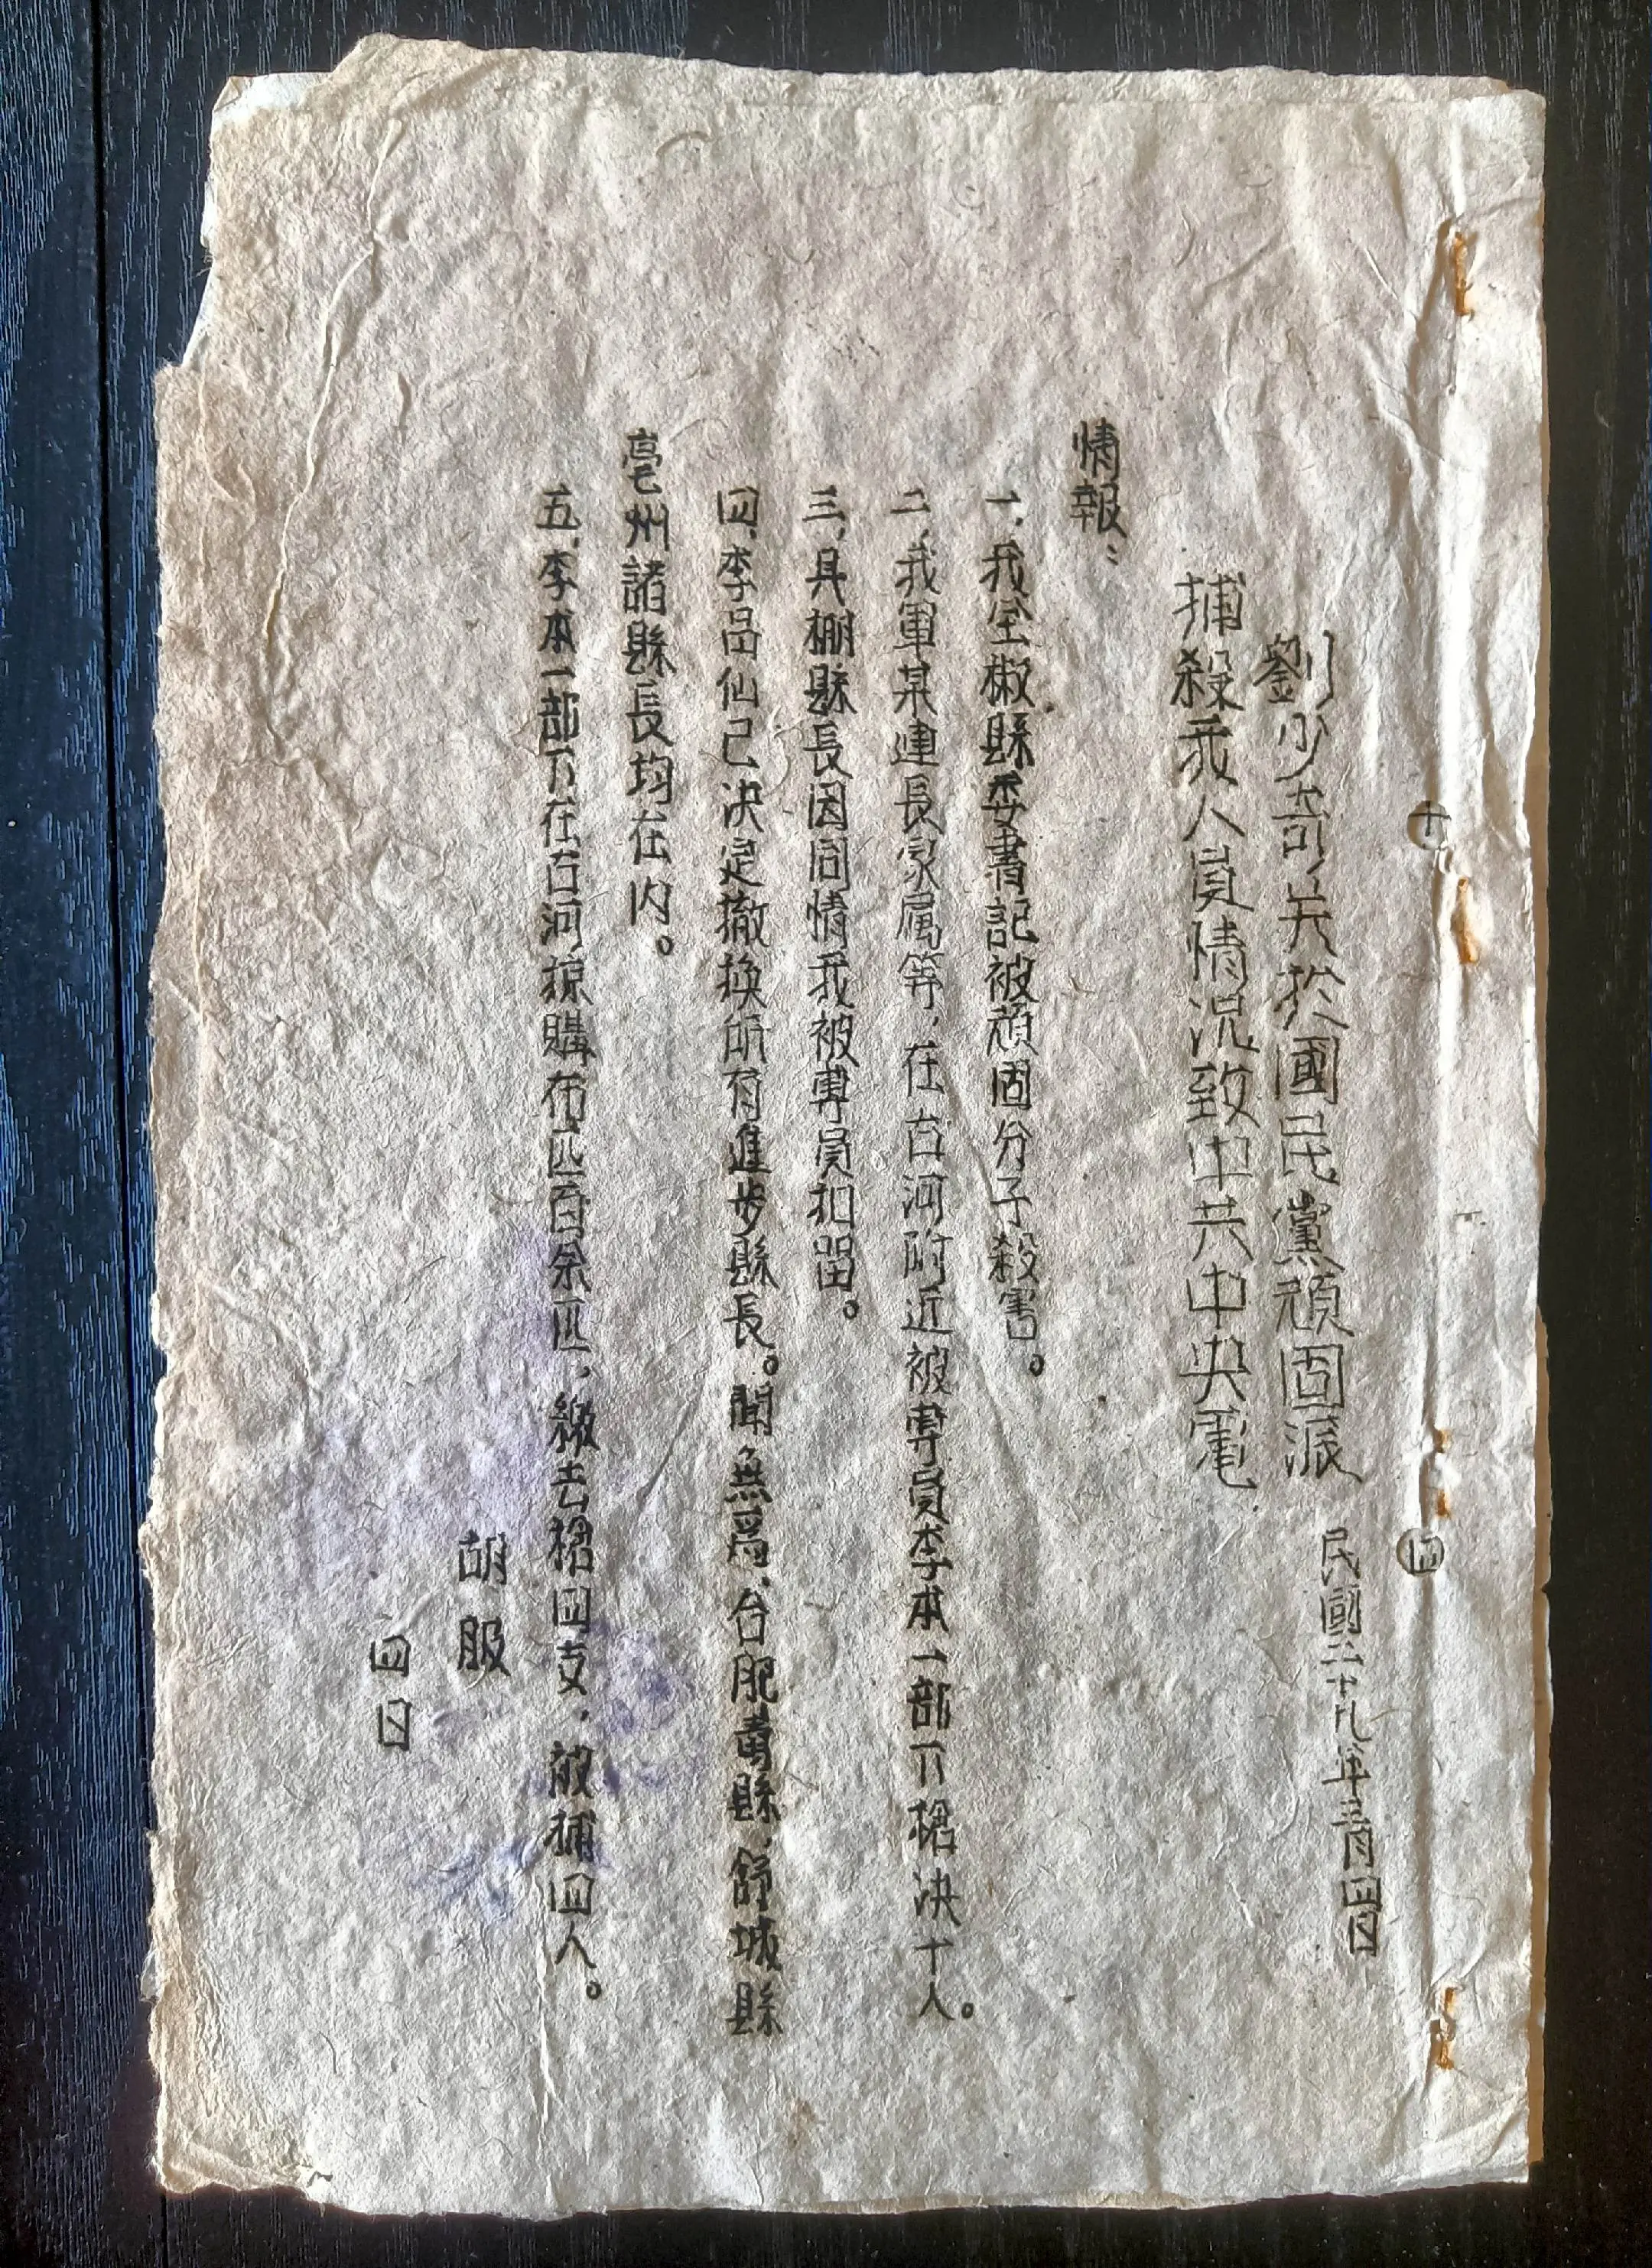 十
四
劉少奇关於國民黨頑固派
捕殺我人員情况致中共中央電
民國二十九年三月四日
情報：
一、我全椒縣委書記被頑固分子殺害。
二、我軍某連長家属等，在古河附近被專員李本一部下槍决十人。
三、具棚縣長因同情我被專員扣留。
四、李品仙已决定撤换所有進步縣長。聞無爲、合肥、壽縣、舒城縣
亳州諸縣長均在内。
五、李本一部下在古河掠購布匹百余匹，繳去槍四支，被捕四人。
胡服
四日